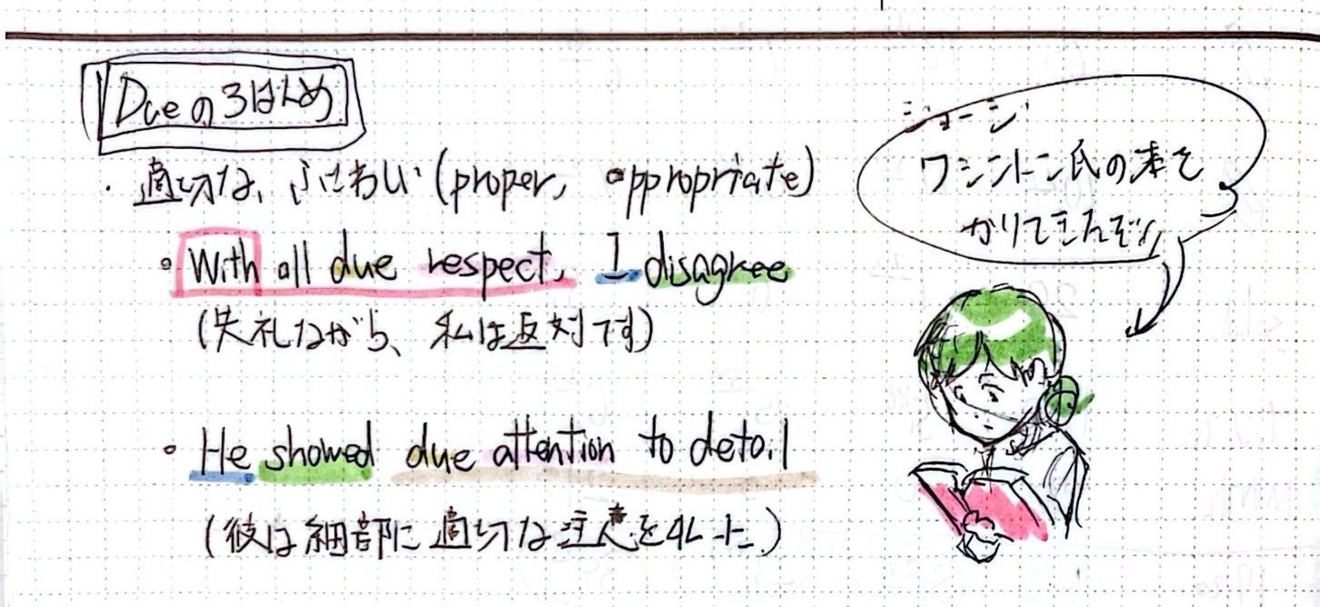 Dueの3ばんめ
・適切な、ふさわしい (proper, appropriate)
With all due respect, I disagree
(失礼ながら、私は反対です)
He showed due attention to detail
(彼は細部に適切な注意を払った)
ジョージ
ワシントン氏の本を
かりてきたぞッ